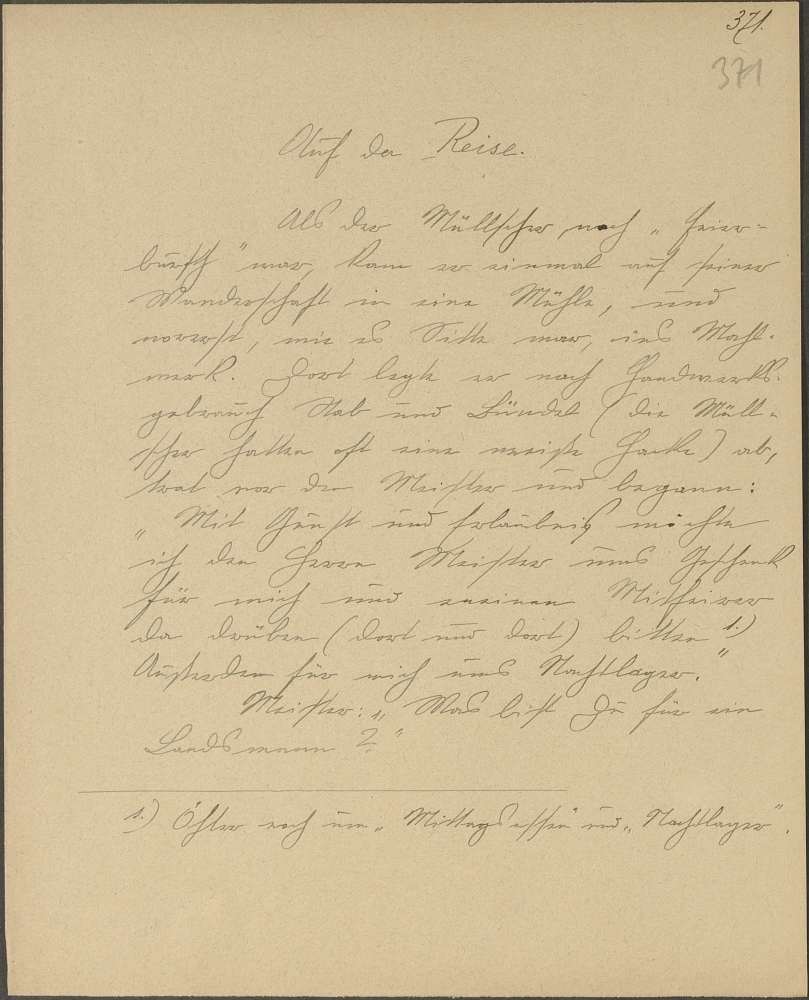 371.
371
Auf der Reise.
Als der Müllscher noch „Feier-
bursch" war, kam er einmal auf seiner
Wanderschaft in eine Mühle, und
vorerst, wie es Sitte war, ins Mahl-
werk. Dort legte er nach Handwerks-
gebrauch Stab und Bündel (die Müll-
scher hatten oft eine weiße Hacke) ab,
trat vor den Meister und begann:
„Mit Gunst und Erlaubnis möchte
ich den Herrn Meister ums Geschenk
für mich und meinen Mitfeirer
da drüben (dort und dort) bitten 1.)
Außerdem für mich ums Nachtlager."
Meister: „Was bist Du für ein
Landsmann?"
1.) Öfter noch um „Mittagsessen" und „Nachtlager".